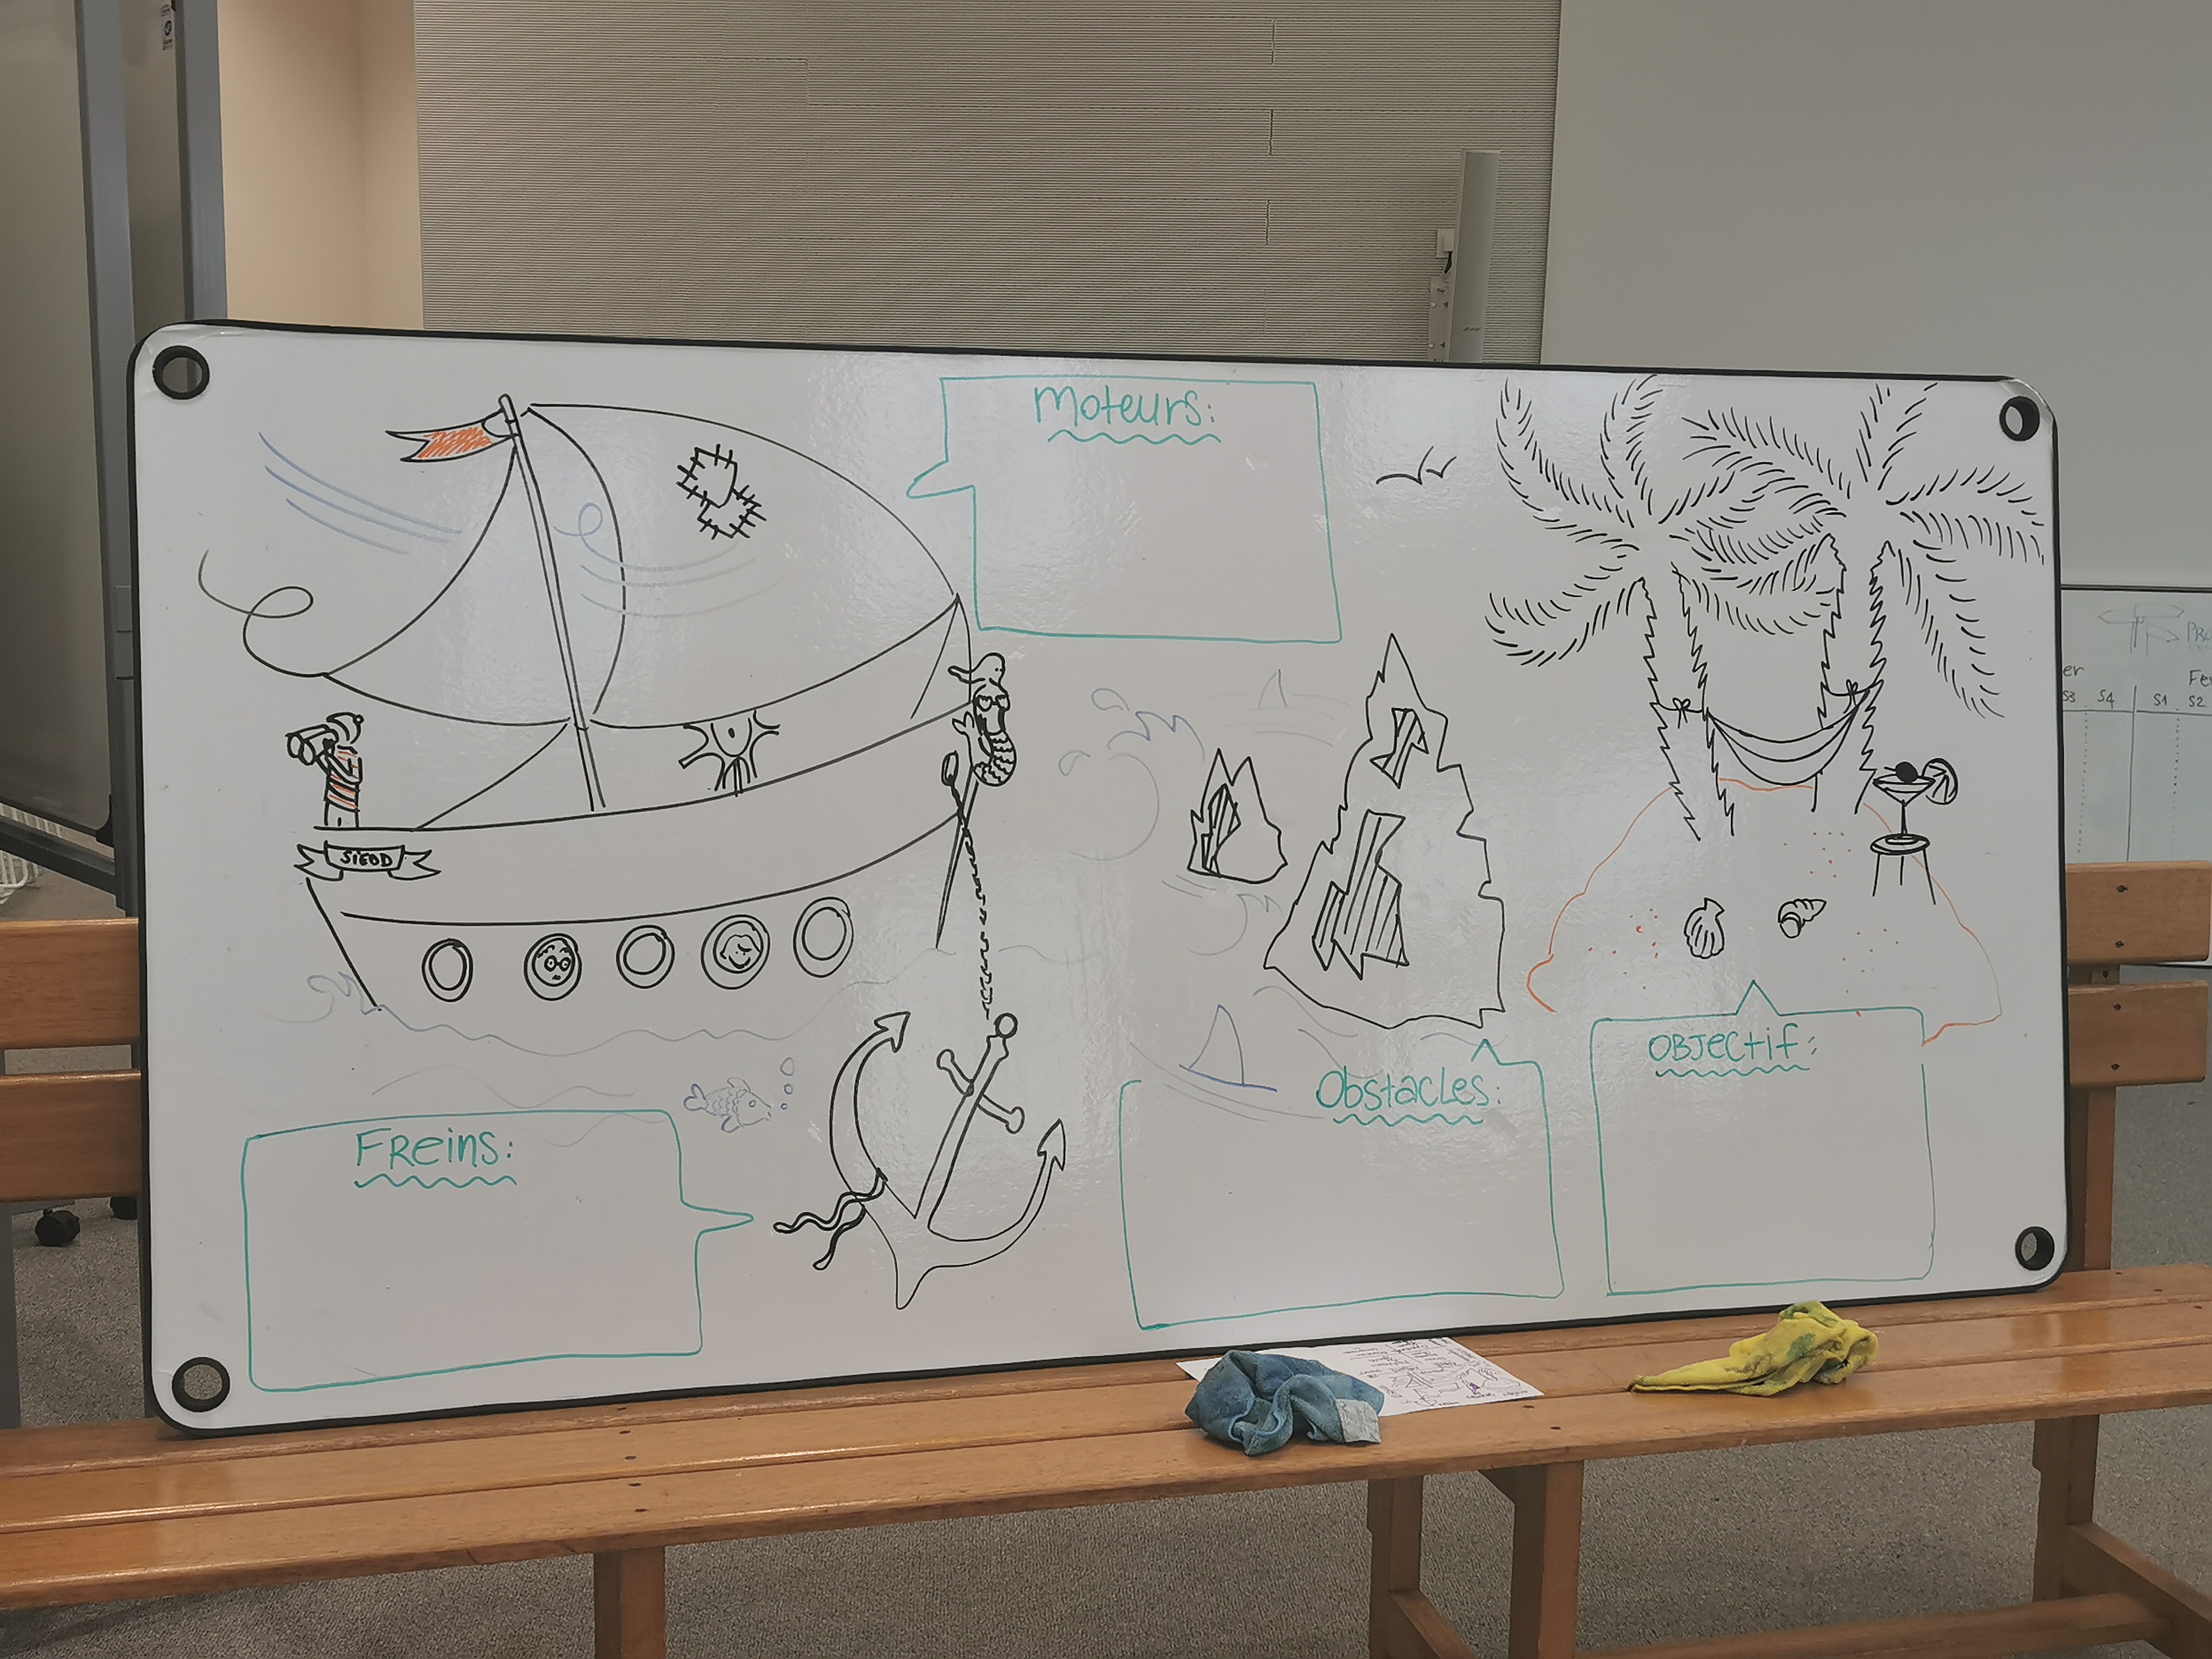 Moteurs:
SIEOD
Freins:
Obstacles:
OBJectif:
er
Fe
S3 S4 S1 S2